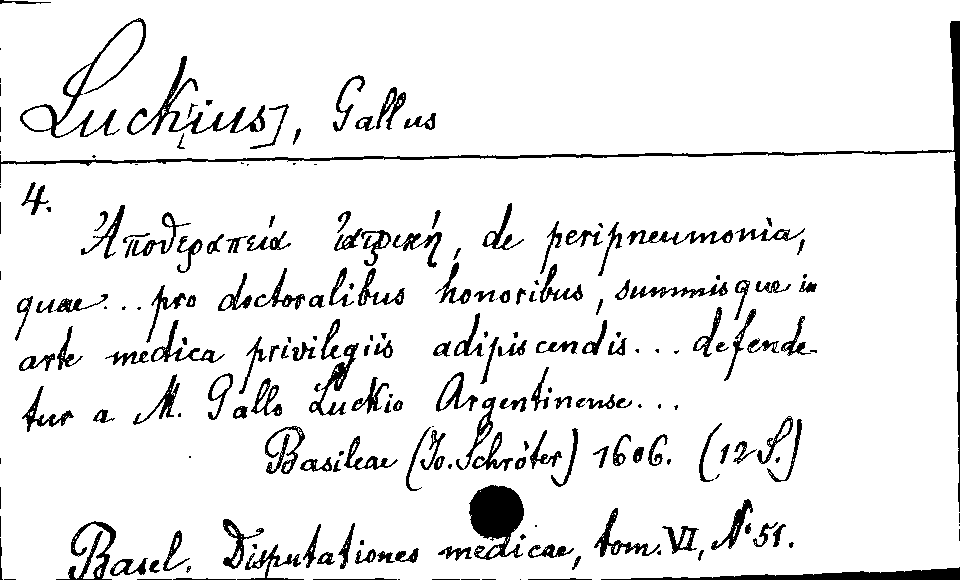 Luck[ius], Gallus
4.
Ἀποθεραπεία ἰατρική, de peripneumonia,
quae... pro doctoralibus honoribus, summisque in
arte medica privilegiis adipiscendis... defende-
tur a M. Gallo Luckio Argentinense...
Basileae (Jo. Schröter) 1606. (12 S.)
Basel. Disputationes medicae, tom. VI, No 51.